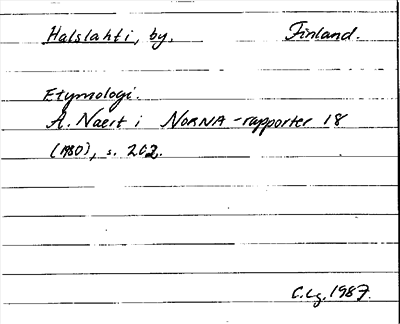 Halslahti, by. Finland.
Etymologi.
A. Naert i NORNA-rapporter 18
(1980), s. 202.
C.Lg. 1987.